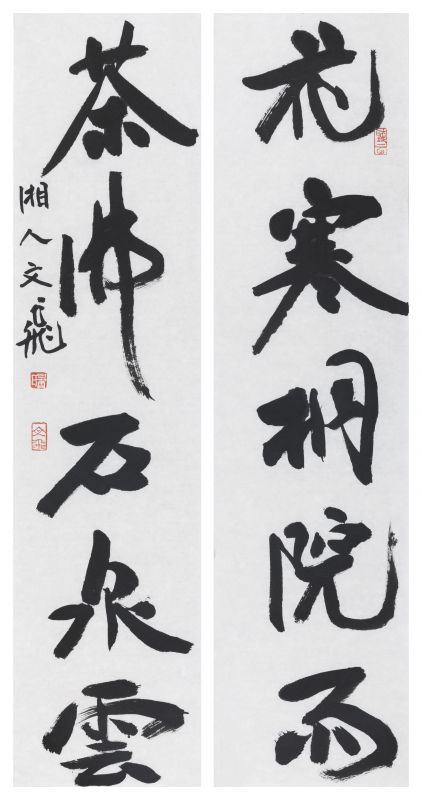 花寒桐院雨
茶沸石泉雲
湘人文飛